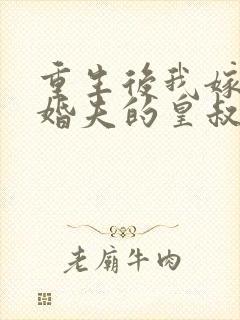 重生後我嫁
婚夫的皇叔
老廟牛肉